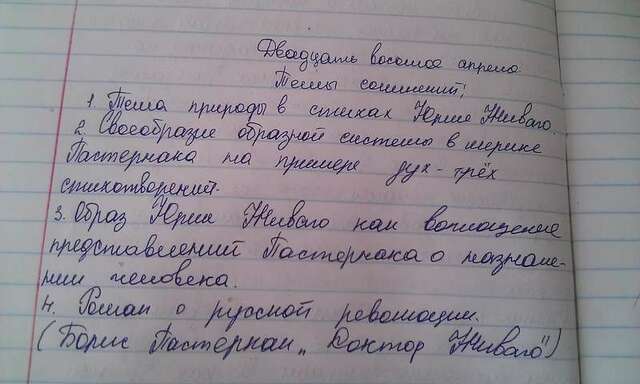 Двадцать восьмое апреля.
Темы сочинений:
1. Тема природы в стихах Юрия Живаго.
2. Своеобразие образной системы в лирике
Пастернака на примере дух-трёх
стихотворений.
3. Образ Юрия Живаго как воплощение
представлений Пастернака о назначе-
нии человека.
4. Роман о русской революции.
(Борис Пастернак „Доктор Живаго")